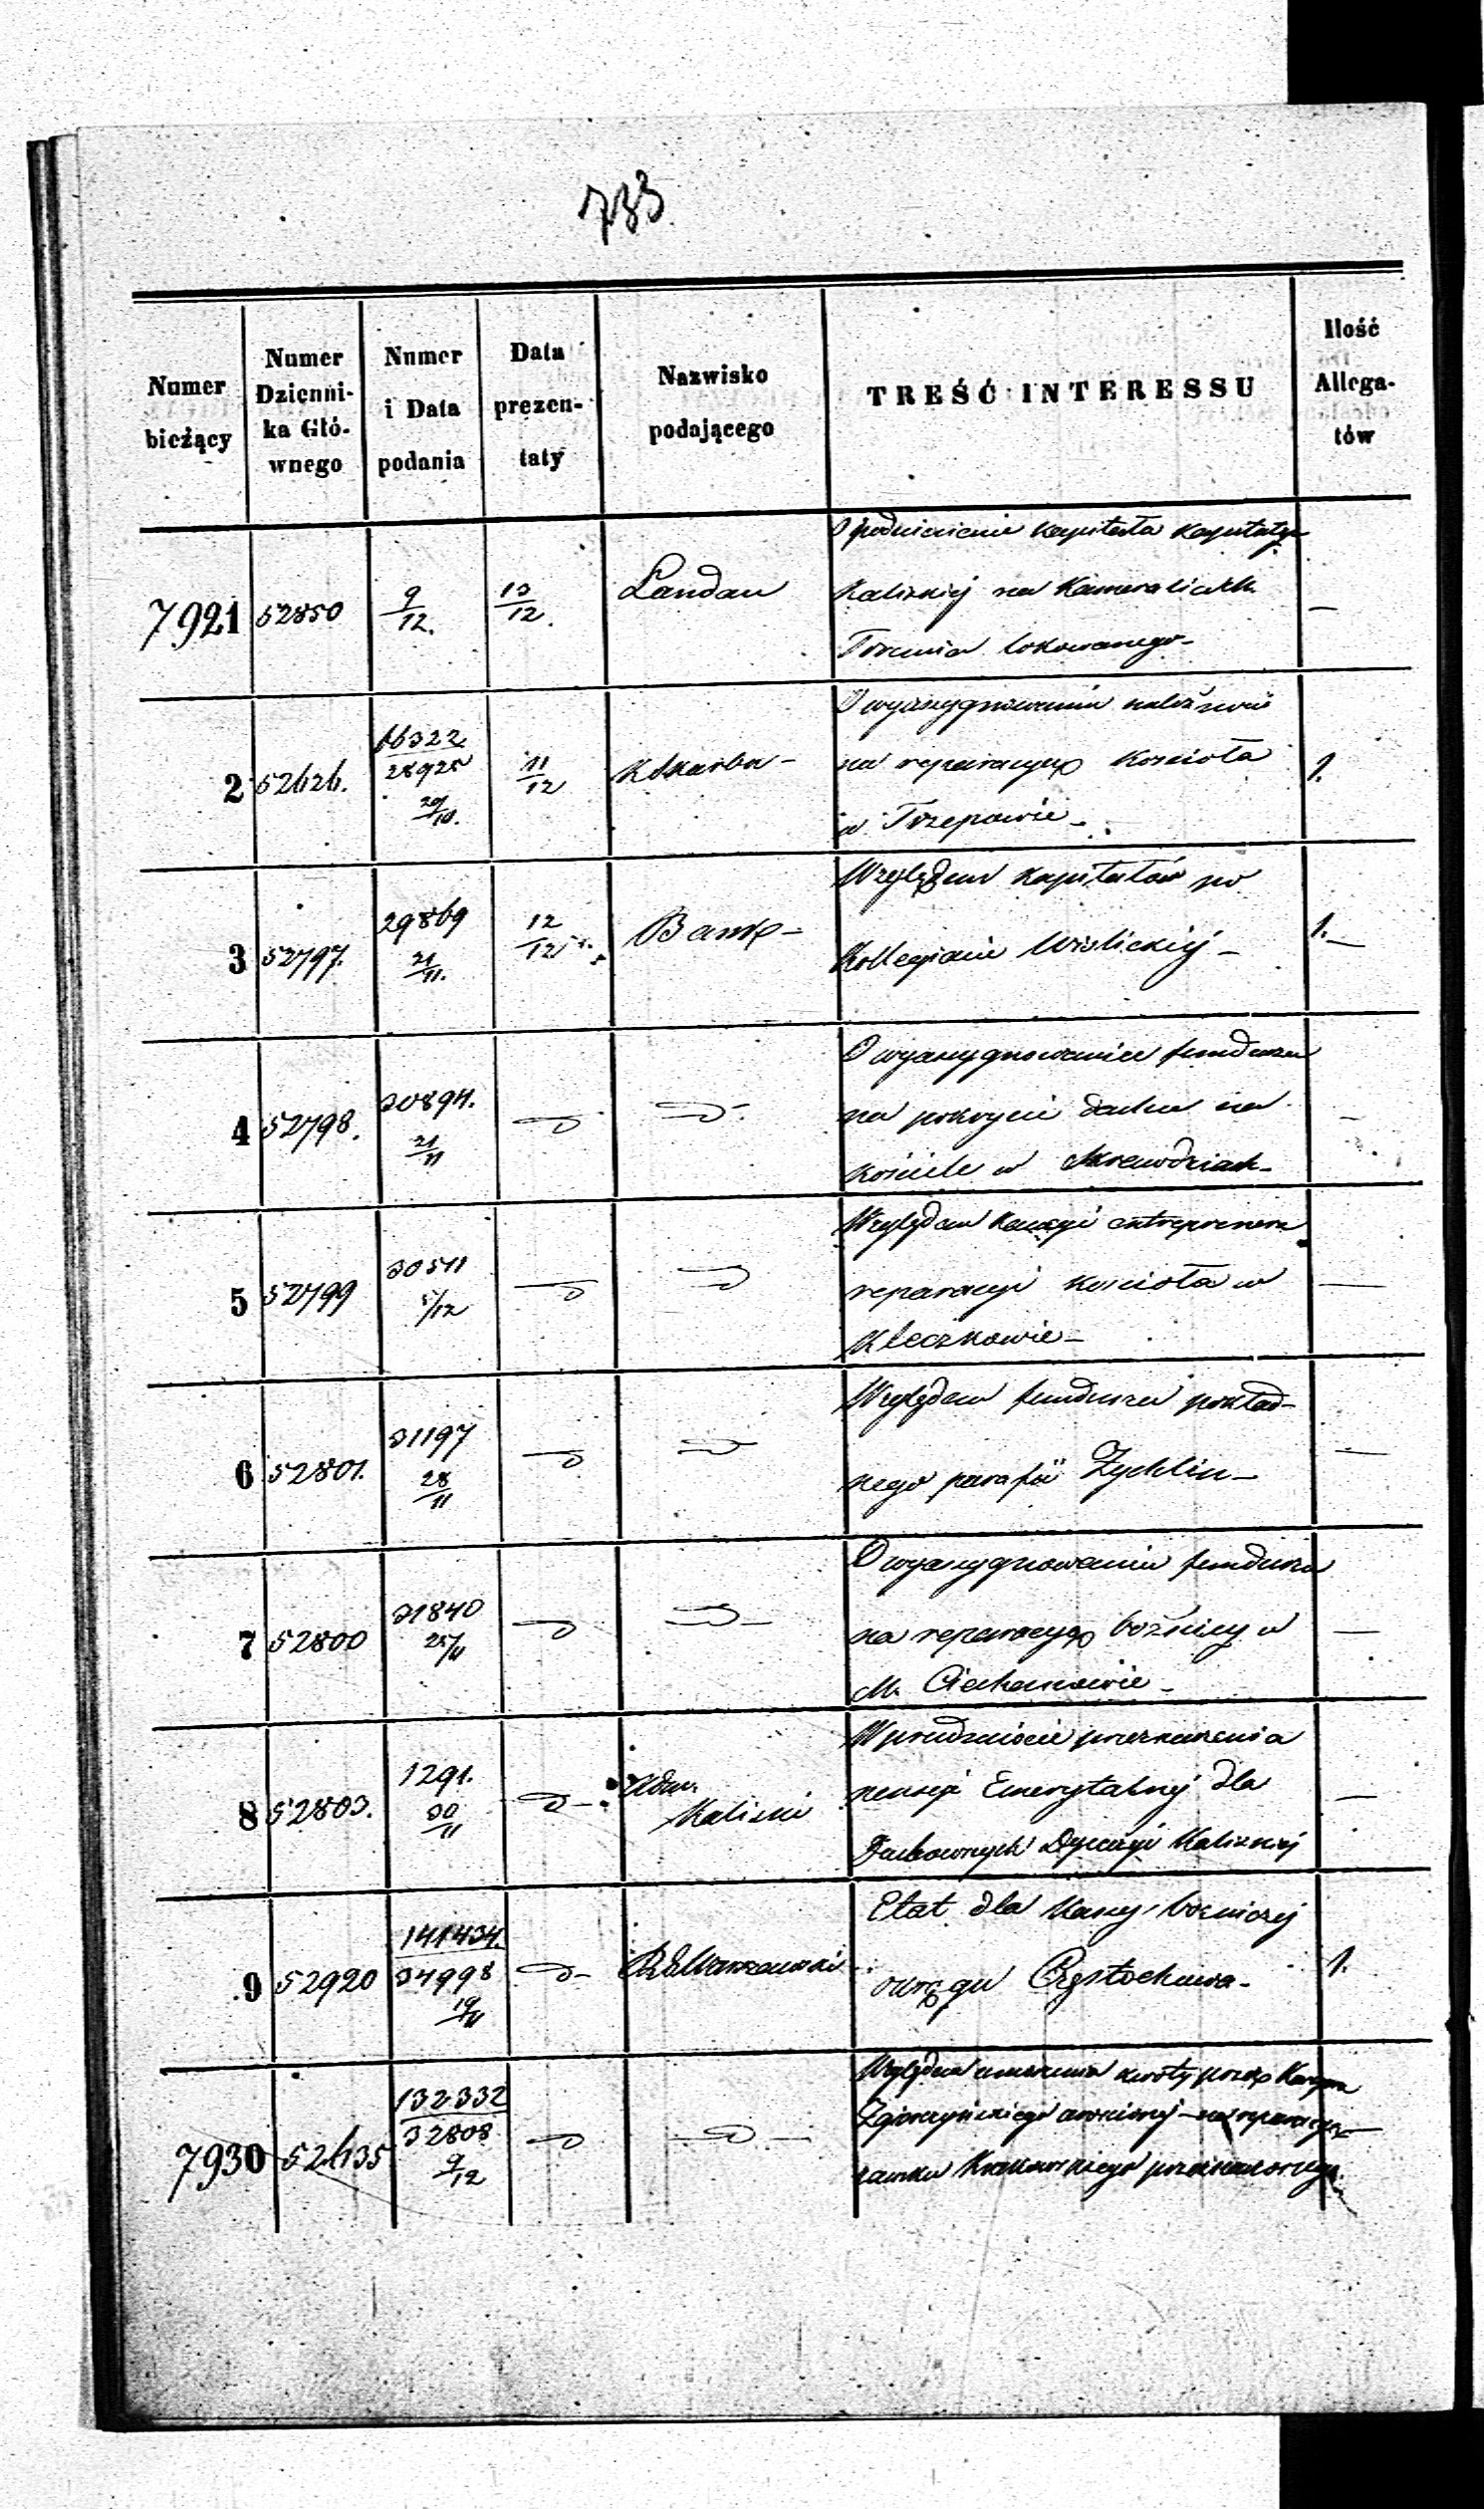 733
Numer bieżący
Numer Dzienni- ka Głó- wnego
Numer i Data podania
Data prezen- taty
Nazwisko podającego
TREŚĆ INTERESSU
Ilość Allega- tów
7921 52850 9/12. 13/12. Landau
O podniesienie kapitału
Kaliskiej na
lokowanego -
—
2 52626. 16322/28925 29/10. 11/12 K Skarbu -
O wyasygnowanie
na reparacyą Kościoła
w Trzepowie -
1.
3 52797. 29869 21/11. 12/12 Bank -
Względem kapitałów po
Kollegiacie Wislickiej -
1. —
4 52798. 30894. 21/11
O wyasygnowanie funduszu
na pokrycie dachu na
kościele w
—
5 52799 30511 5/12
Względem kaucyi entreprenera
reparacyi kościoła w
Kleczkowie -
—
6 52801. 31197 28/11
Względem funduszu pokład-
nego parafii Zychlin -
—
7 52800 31840 25/11
O wyasygnowanie funduszu
na reparacyą bożnicy w
M. Ciechanowie -
—
8 52803. 1291. 30/11 Adm. Kaliski
W przedmiocie przeznaczenia
pensyi Emerytalnej dla
Duchownych Dyecezyi Kaliskiej
—
9 52920 141434./34998 19/11 R G Warszawski
Etat dla Kassy bożniczej
okręgu Częstochowa -
1.
7930 52635 132332/32808 9/12
Względem kwoty przez
na reparacyą
zamku Krakowskiego
—